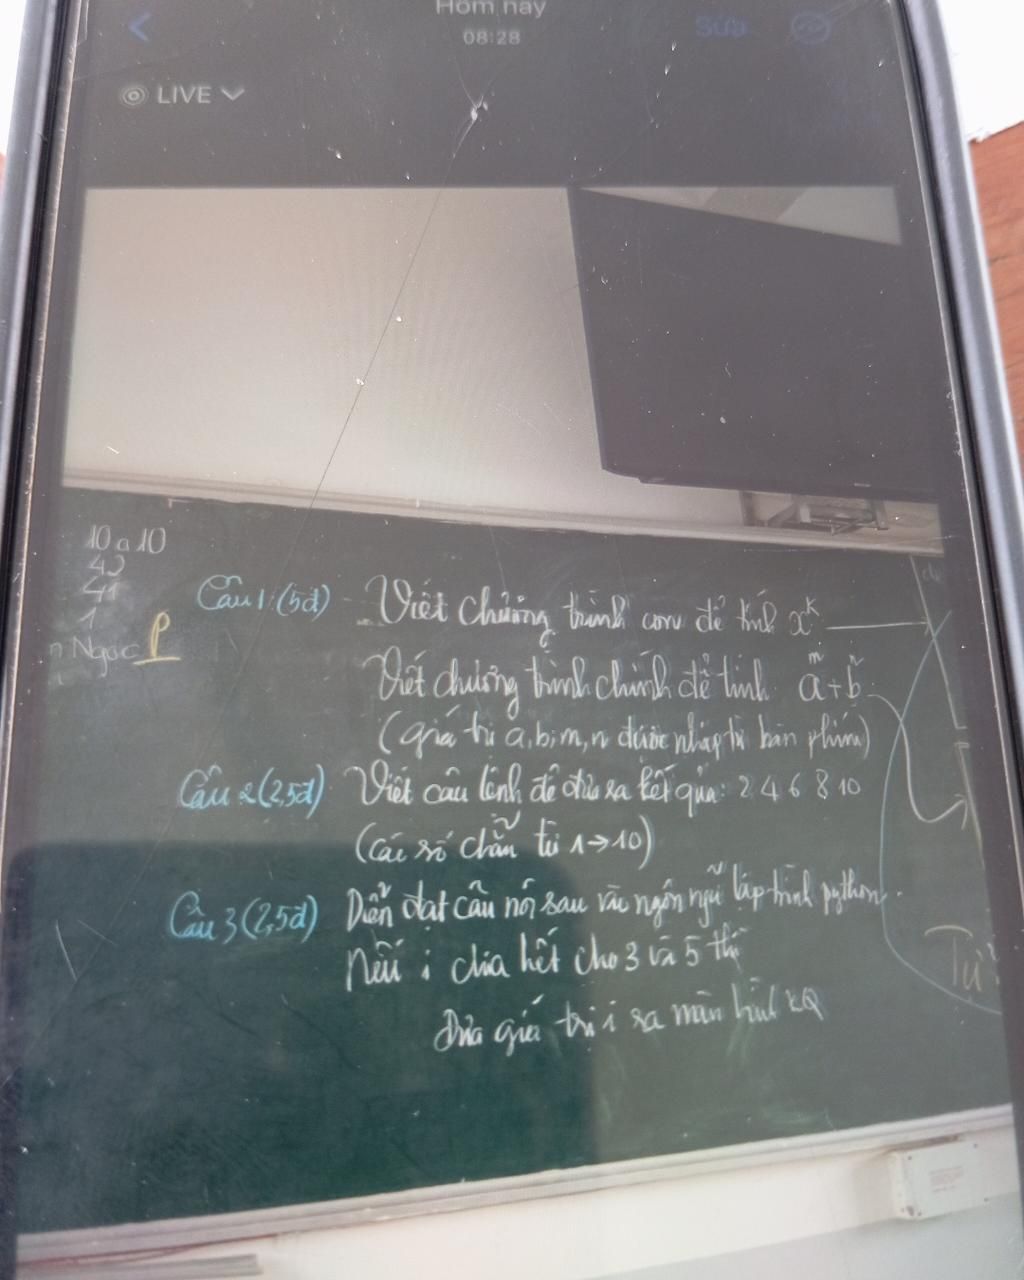 Hôm nay
08:28
Sửa
LIVE
10a10
42
41
1
n Ngọc P
Câu 1 (5đ) - Viết chương trình con để tính x^k
Viết chương trình chính để tính a^m + b^n
(giá trị a, b, m, n được nhập từ bàn phím)
Câu 2 (2,5đ) Viết câu lệnh để đưa ra kết quả: 2 4 6 8 10
(các số chẵn từ 1 → 10)
Câu 3 (2,5đ) Diễn đạt câu nói sau vào ngôn ngữ lập trình python.
Nếu i chia hết cho 3 và 5 thì
Đưa giá trị i ra màn hình KQ